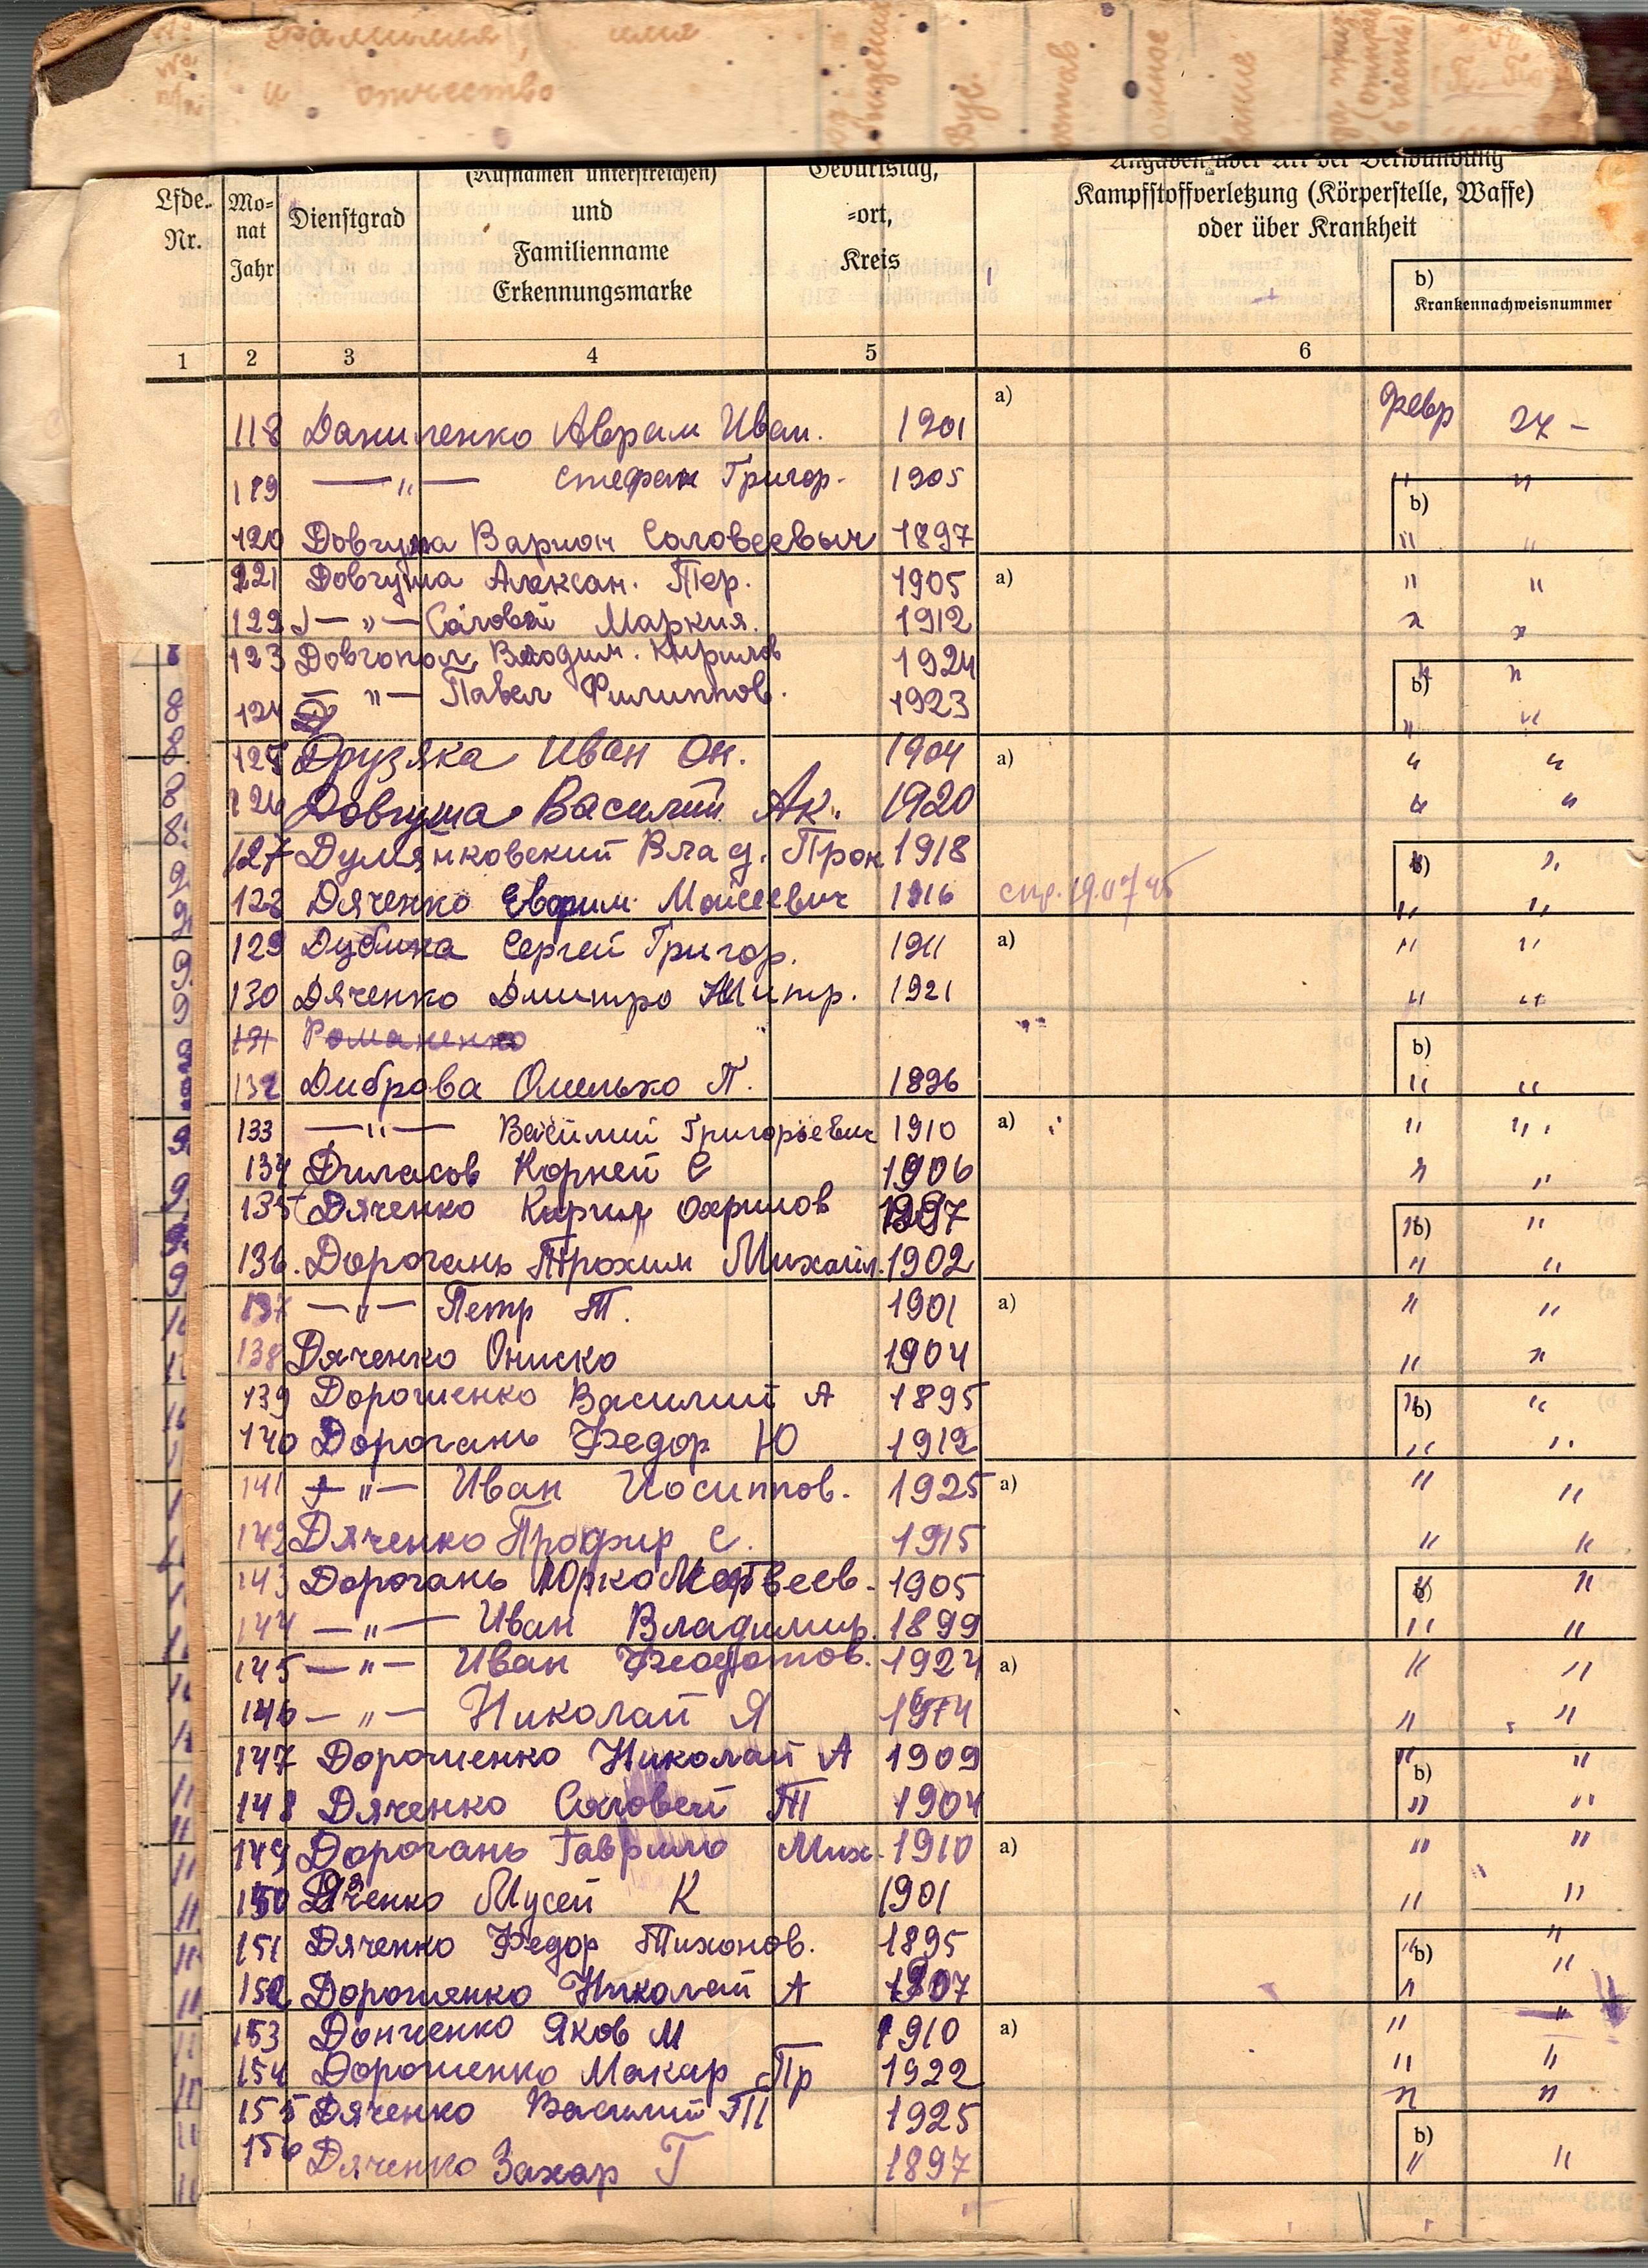 фамилия, имя
и отчество
(Rufnamen unterstreichen)
Geburtstag,
Angaben über Art der Verwundung
Lfde. Nr.
Mo-
nat
Jahr
Dienstgrad
und
Familienname
Erkennungsmarke
-ort,
Kreis
Kampfstoffverletzung (Körperstelle, Waffe)
oder über Krankheit
b)
Krankennachweisnummer
1 2 3 4 5 6
118 Даниленко Аврам Иван. 1901 a) февр 27 -
119 —"— Стефан Григор. 1905 " "
120 Довгуша Варион Соловеевыч 1897 b) " "
121 Довгуша Алексан. Тер. 1905 a) " "
122 —"— Соловей Маркия. 1912 " "
123 Довгопол Володим. Кирилов 1924 b) " "
124 —"— Павел Филиппов. 1923 " "
125 Друзяка Иван Он. 1904 a) " "
126 Довгуша Василий Ак. 1920 " "
127 Думянковский Влад. Прок 1918 b) " "
128 Дяченко Евфрим. Мойсеевич 1916 спр. 19.07 95 " "
129 Дубина Сергей Григор. 1911 a) " "
130 Дяченко Дмитро Митр. 1921 " "
131 Романенко b)
132 Диброва Омелько П. 1896 " "
133 —"— Василий Григорьевич 1910 a) " "
134 Диласов Корней С 1906 " "
135 Дяченко Кирил Охримов 1897 b) " "
136. Дорогань Трохим Михайл. 1902 " "
137 —"— Петр Т. 1901 a) " "
138 Дяченко Ониско 1904 " "
139 Дорошенко Василий А 1895 b) " "
140 Дорогань Федор Ю 1912 " "
141 —"— Иван Иосиппов. 1925 a) " "
142 Дяченко Профир С. 1915 " "
143 Дорогань Юрко Матвеев. 1905 b) " "
144 —"— Иван Владимир. 1899 " "
145 —"— Иван Феодотов. 1924 a) " "
146 —"— Николай Я " "
147 Дорошенко Николай А 1909 b) " "
148 Дяченко Соловей Т 1904 " "
149 Дорогань Гаврило Мих. 1910 a) " "
150 Дяченко Мусей К 1901 " "
151 Дяченко Федор Тихонов. 1895 b) " "
152 Дорошенко Николай А 1907 " "
153 Донченко Яков М 1910 a) " "
154 Дорошенко Макар Пр 1922 " "
155 Дяченко Василий П 1925 " "
156 Дяченко Захар Г 1897 b) " "